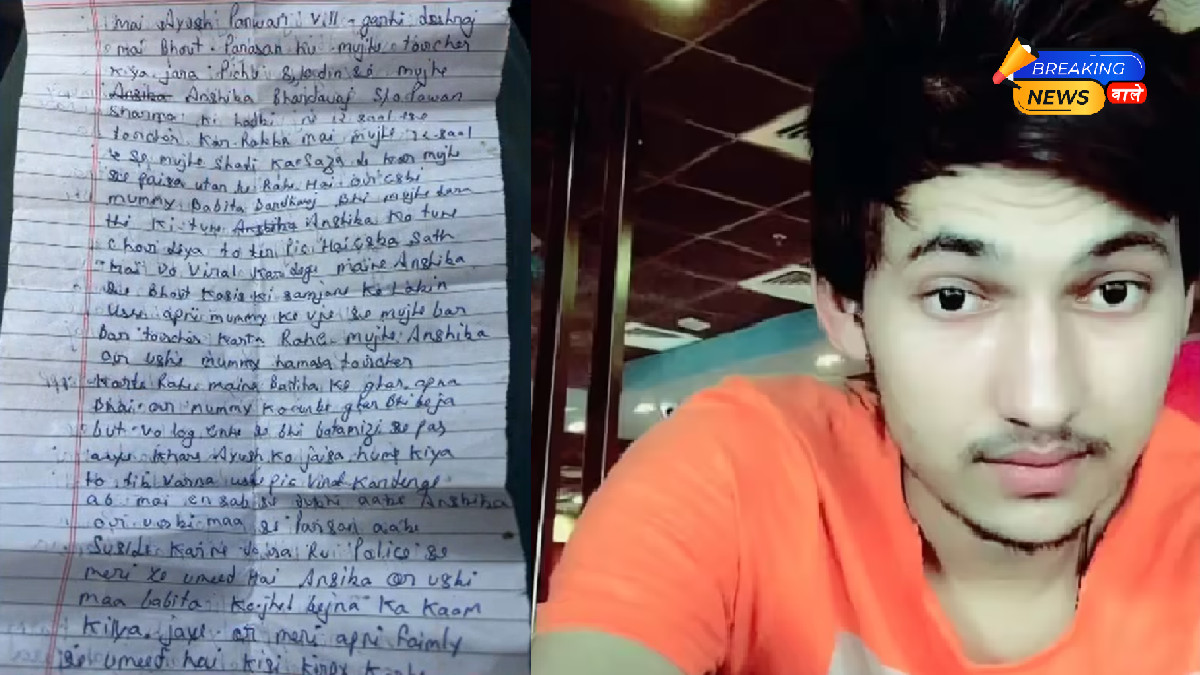 mai Ayush Panwar vill - garhi deshraj
mai Bhout Parasan hu mujhe toucher
kiya jara Pichle din se mujhe
Ansika Anshika Bhardawaj S/o dawan
Sharma ki ladki ne 12 saal se
toucher kar Rakha mai mujhe saal
se mujhe Shadi Ka de kar mujhe
se paisa Rahe Hai our
mummy Babita Bhi mujhe
thi ki tune Anshika Anshika Ko tune
Chor diya to teri Pic Hai Sath
mai vo Viral Kar dege maine Anshika
Bhout Kosis ki samjane Ke Lakin
apni mummy Ke se mujhe bar
Bar toucher karta Rahe mujhe Anshika
our mummy hamasa toucher
Karte Rahe maine Babita Ke ghar apna
Bhai or mummy Ko ghar Bhi beja
but vo log se bhi batamizi se
aaye Ayush Ko jaisa hume Kiya
to Varna pic Viral Kardenge
ab mai en sab se aake Anshika
our uski maa se aake
Suside Karne Hu Police se
meri ye umeed Hai Ansika or ushi
maa babita Ko jhel bejna Ka Kaam
Kiya jaye or meri apni faimly
se umeed hai kisi
BREAKING
NEWS वाले